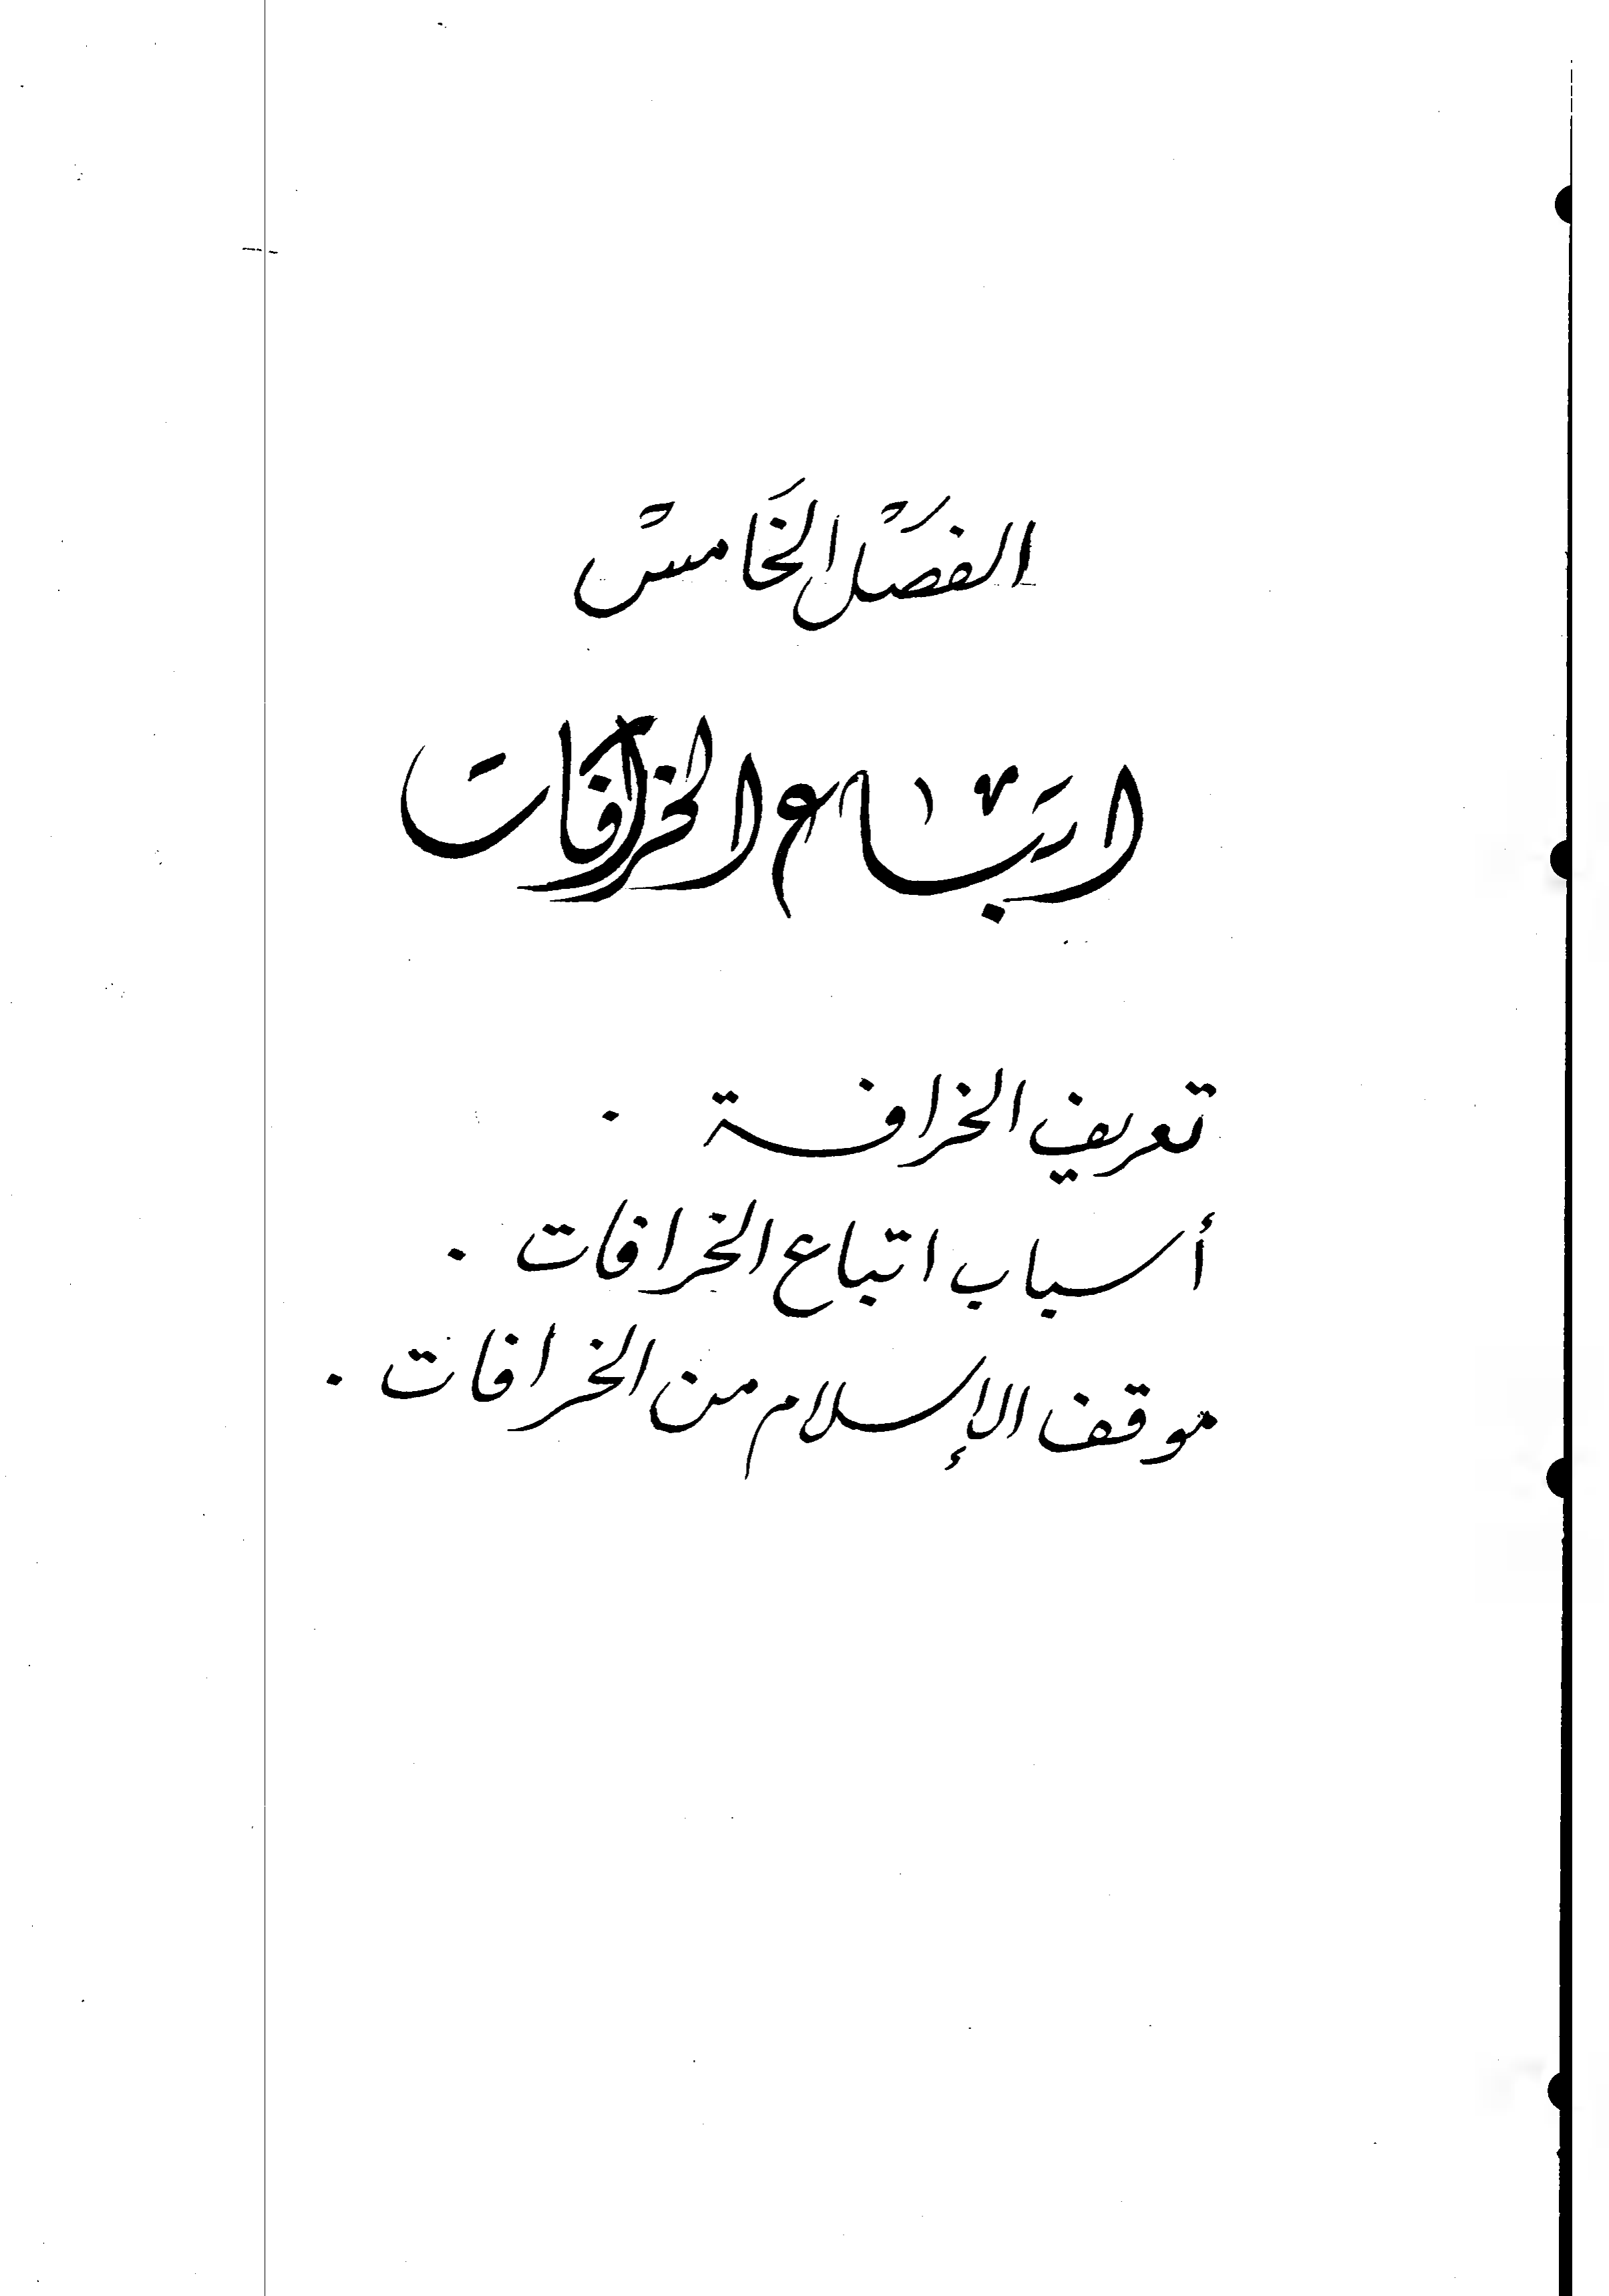 الفصْل الخَامسْ
اتباع الخرافات
تعريف الخرافة .
أسباب اتباع الخرافات .
موقف الإسلام من الخرافات .